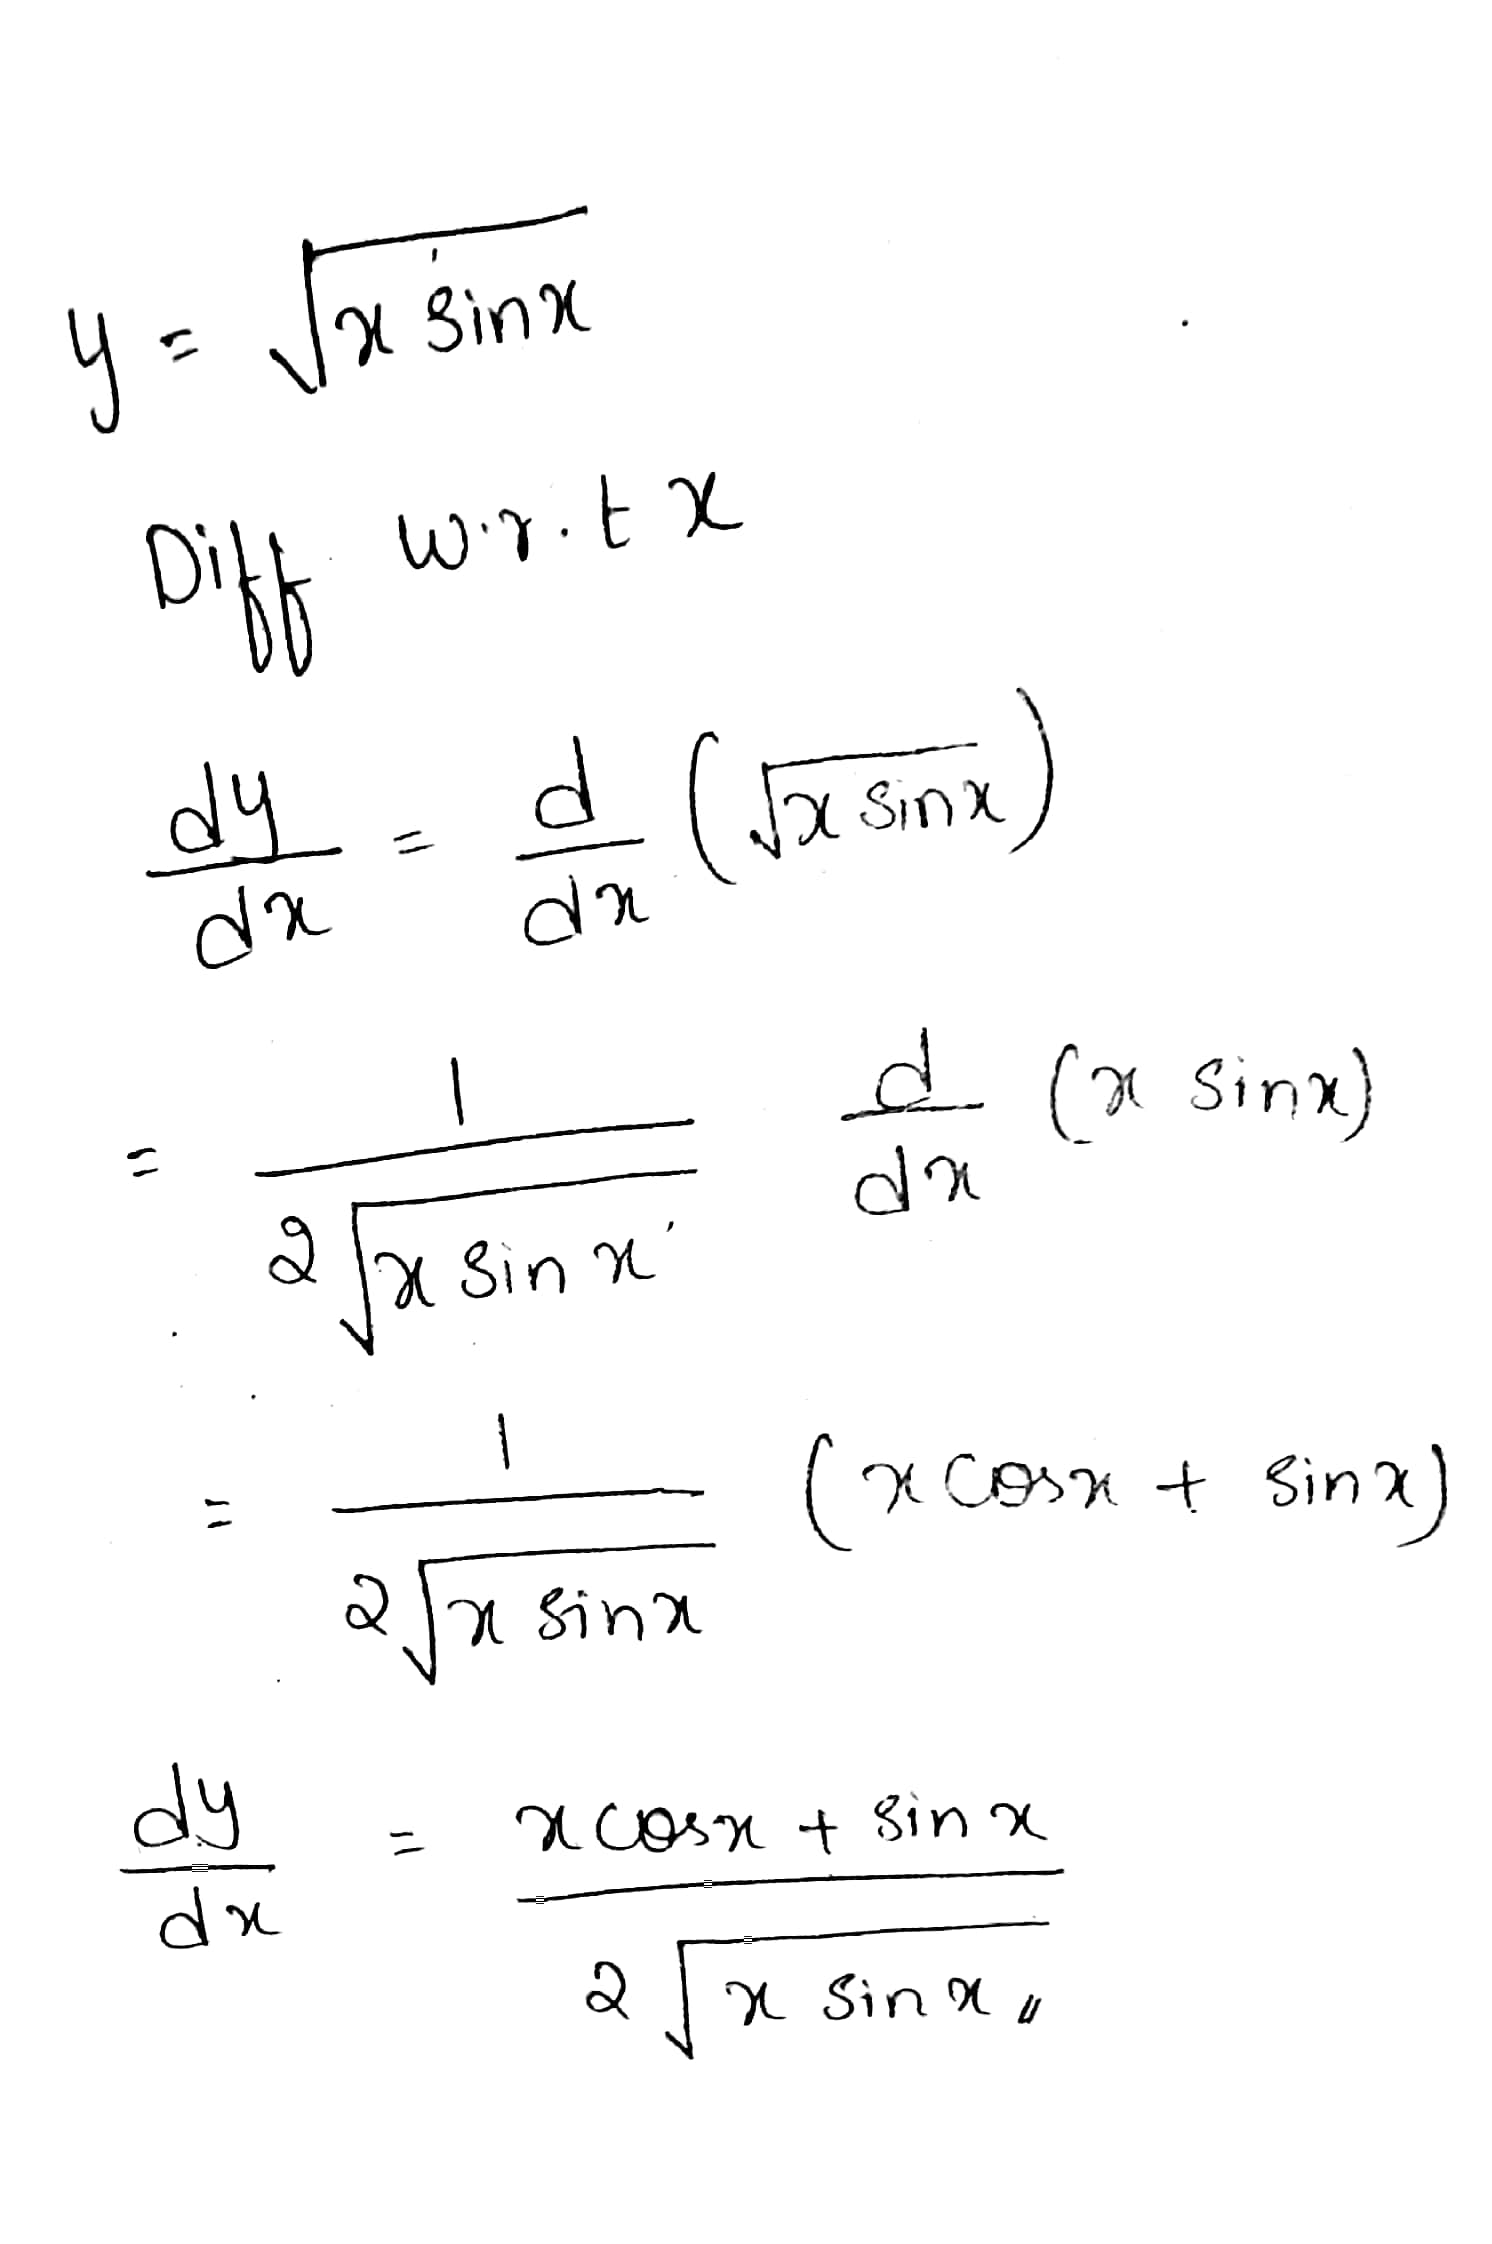 y = √(x sinx)
Diff w.r.t x
dy/dx = d/dx (√(x sinx))
= 1/(2√(x sin x)) d/dx (x sinx)
= 1/(2√(x sinx)) (x cosx + sinx)
dy/dx = (x cosx + sin x)/(2√(x sin x)) //